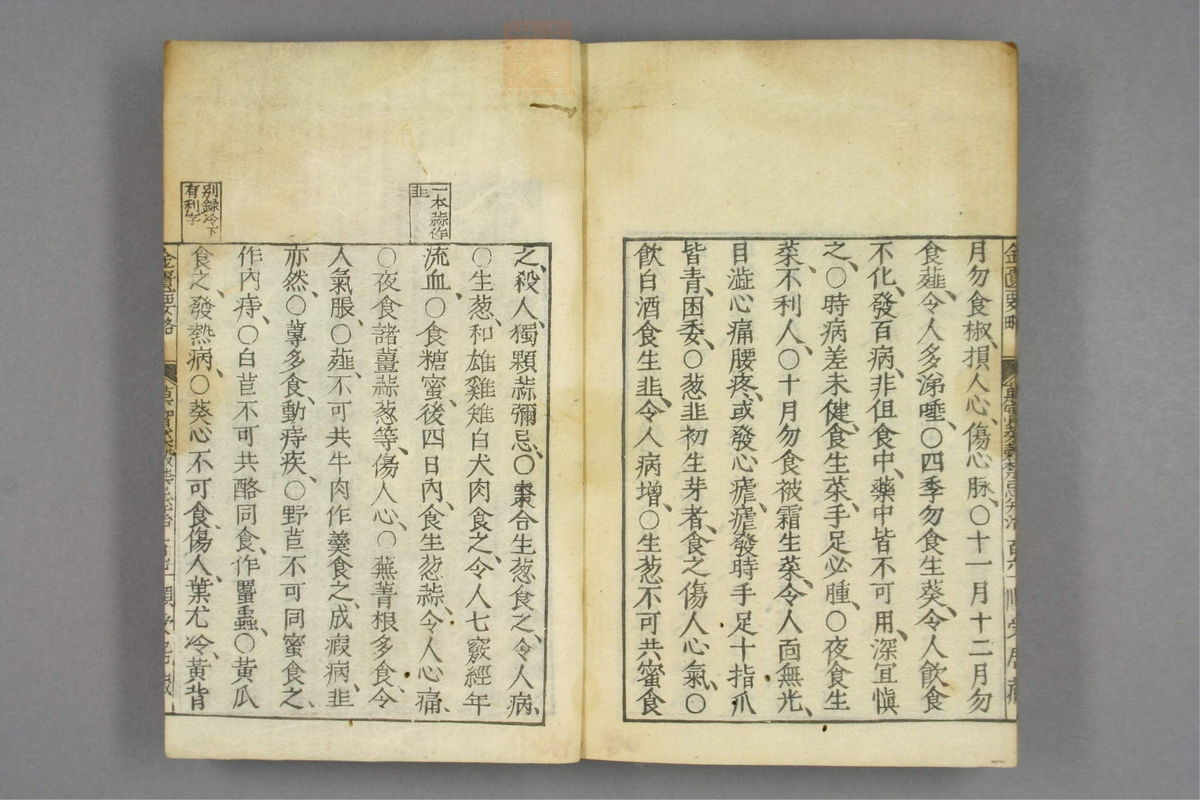 月勿食椒、損人心、傷心脉、○十一月十二月勿
食薤、令人多涕唾、○四季勿食生葵、令人飲食
不化、發百病、非但食中、藥中皆不可用、深宜愼
之、○時病差未健、食生菜、手足必腫、○夜食生
菜、不利人、○十月勿食被霜生菜、令人面無光、
目澁心痛腰疼、或發心瘧、瘧發時手足十指爪
皆青、困委、○葱韭初生芽者、食之傷人心氣、○
飲白酒食生韭、令人病增、○生葱不可共蜜食
一本蒜作
韭
之、殺人、獨顆蒜彌忌、○棗合生葱食之、令人病、
○生葱、和雄雞雉白犬肉食之、令人七竅經年
流血、○食糖蜜、後四日內、食生葱蒜、令人心痛、
○夜食諸薑蒜葱等、傷人心、○蕪菁根多食、令
人氣脹、○薤、不可共牛肉作羹食之、成瘕病、韭
亦然、○蓴多食、動痔疾、○野苣不可同蜜食之、
作內痔、○白苣不可共酪同食、作䘌蟲、○黃瓜
食之、發熱病、○葵心不可食、傷人、葉尤冷、黃背
別録冷下
有利字
金匱要略